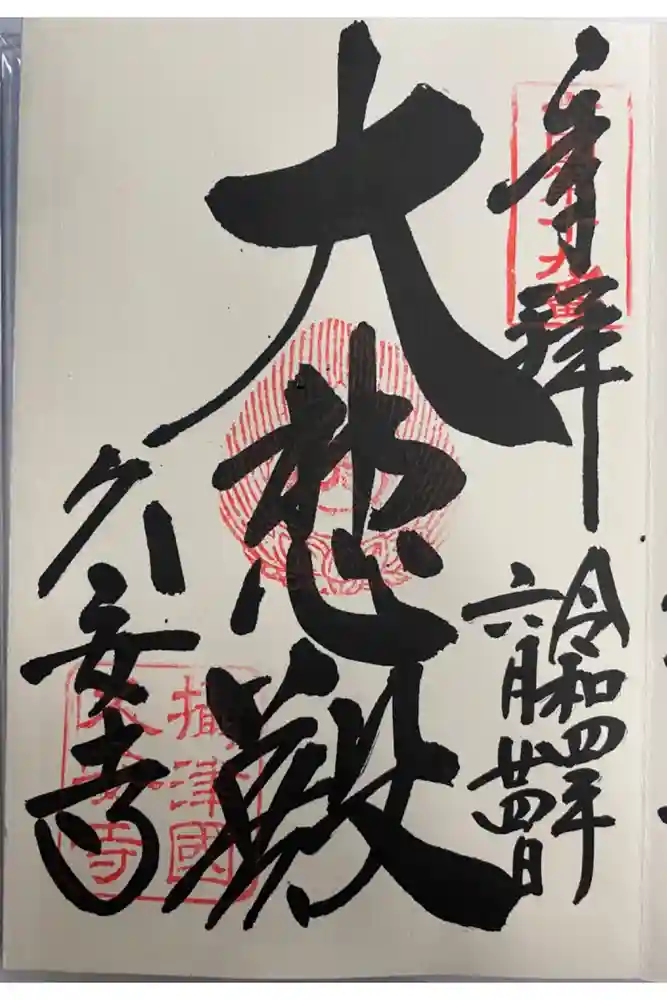 奉拝
令和四年
六月廿四日
大悲殿
久安寺
攝津國
久安寺